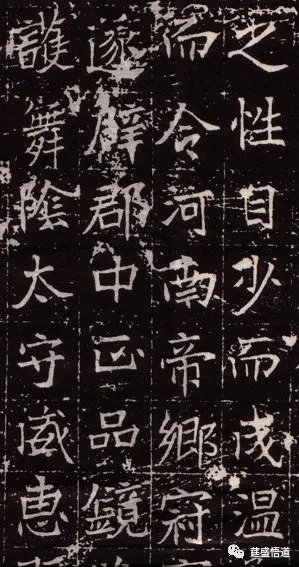 之性自少而成温
而令河南帝鄉冠
遂辟郡中正品鏡
護舞陰太守威恵
莛盛悟道